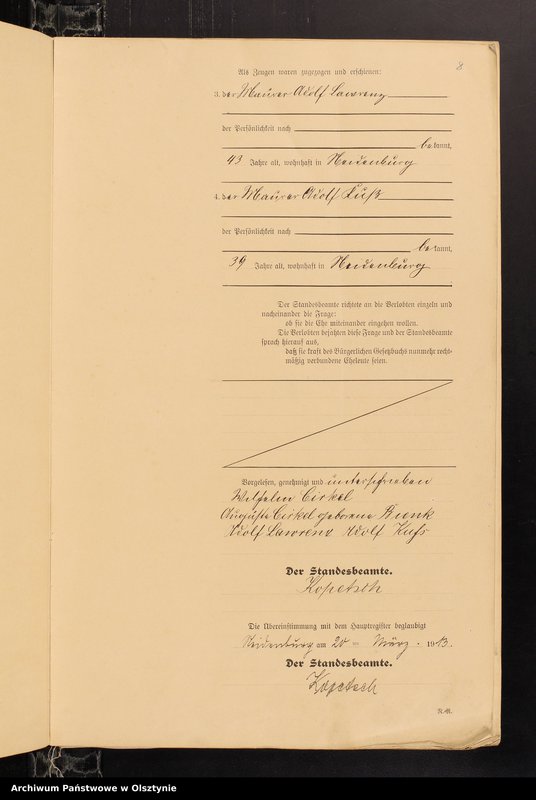 8
Als Zeugen waren zugezogen und erschienen:
3. der Maurer Adolf Lawrenz
der Persönlichkeit nach
bekannt,
43 Jahre alt, wohnhaft in Neidenburg
4. der Maurer Adolf Kuß
der Persönlichkeit nach
bekannt,
39 Jahre alt, wohnhaft in Neidenburg
Der Standesbeamte richtete an die Verlobten einzeln und
nacheinander die Frage:
ob sie die Ehe miteinander eingehen wollen.
Die Verlobten bejahten diese Frage und der Standesbeamte
sprach hierauf aus,
daß sie kraft des Bürgerlichen Gesetzbuchs nunmehr recht-
mäßig verbundene Eheleute seien.
Vorgelesen, genehmigt und unterschrieben
Wilhelm Cirkel
Auguste Cirkel geborene
Adolf Lawrenz Adolf Kuß
Der Standesbeamte.
Kopetsch
Die Übereinstimmung mit dem Hauptregister beglaubigt
Neidenburg am 20 ten März 1913.
Der Standesbeamte.
Kopetsch
R.M.
Archiwum Państwowe w Olsztynie